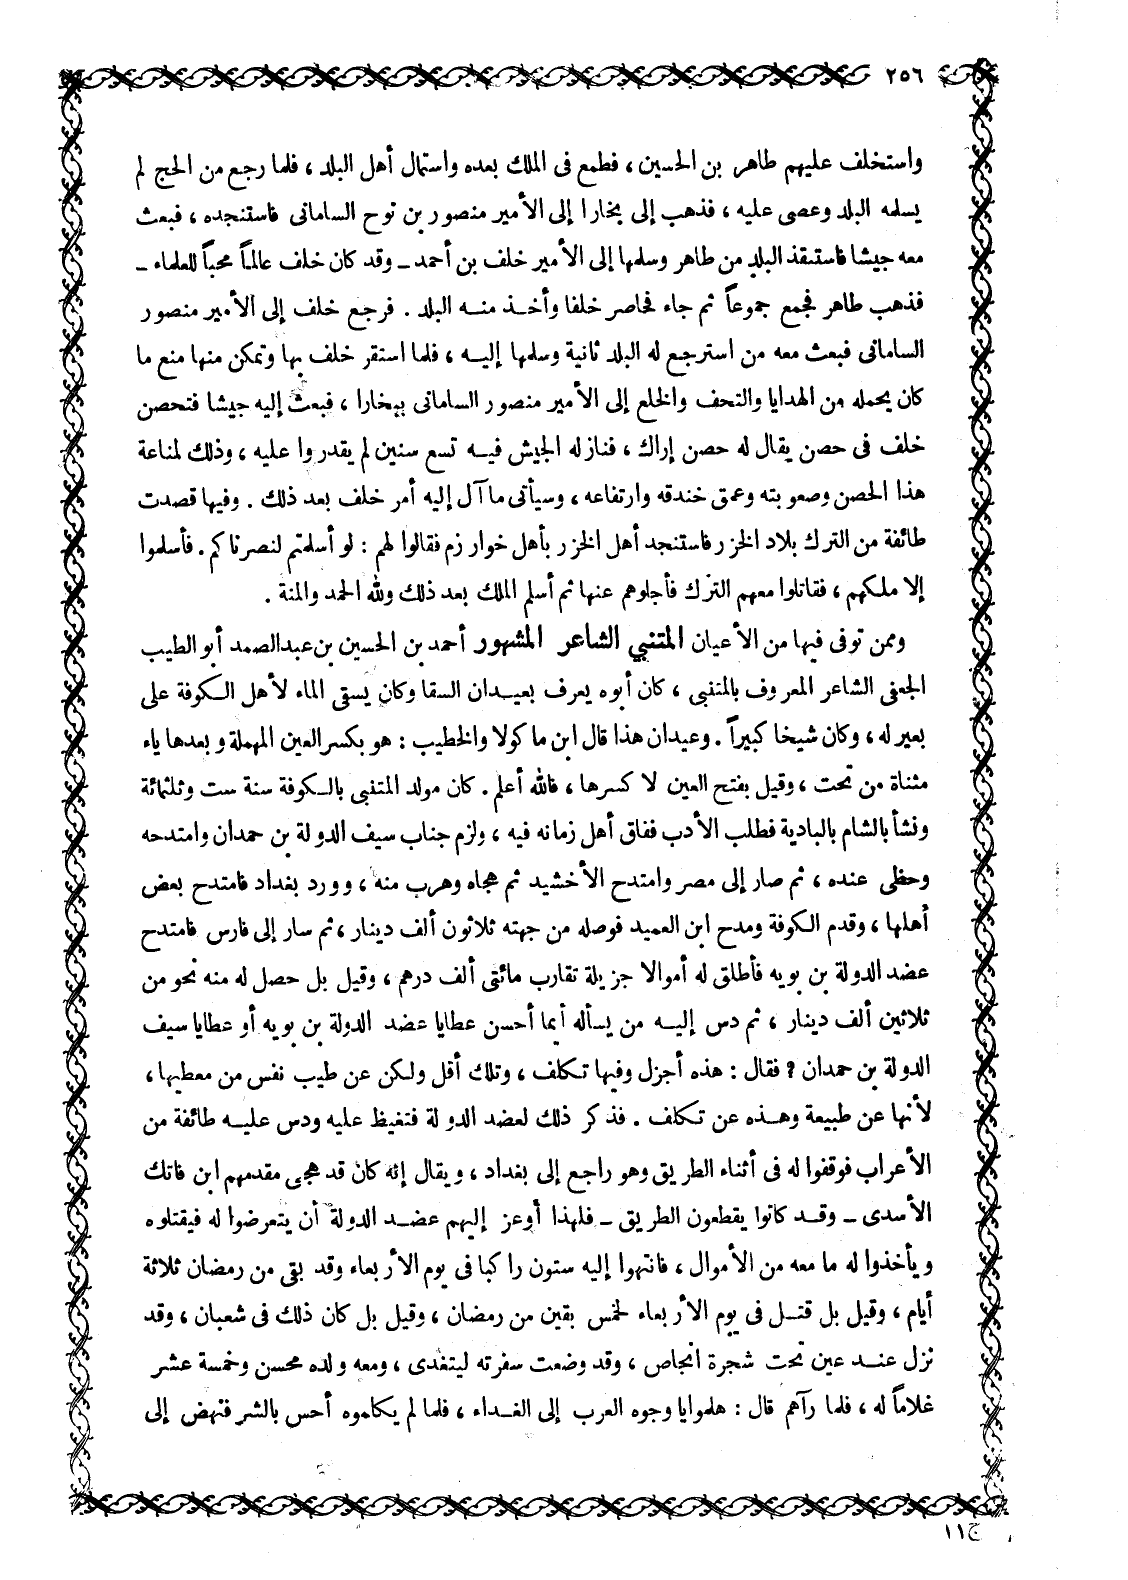 ٢٥٦
واستخلف عليهم طاهر بن الحسين ، فطمع فى الملك بعده واستمال أهل البلد ، فلما رجع من الحج لم
يسلمه البلد وعصى عليه ، فذهب إلى بخارا إلى الأمير منصور بن نوح السامانى فاستنجده ، فبعث
معه جيشا فاستنقذ البلد من طاهر وسلمها إلى الأمير خلف بن أحمد ــ وقد كان خلف عالماً محباً للعلماء ــ
فذهب طاهر فجمع جموعاً ثم جاء فحاصر خلفا وأخذ منه البلد . فرجع خلف إلى الأمير منصور
السامانى فبعث معه من استرجع له البلد ثانية وسلمها إليه ، فلما استقر خلف بها وتمكن منها منع ما
كان يحمله من الهدايا والتحف والخلع إلى الأمير منصور السامانى ببخارا ، فبعث إليه جيشا فتحصن
خلف فى حصن يقال له حصن إراك ، فنازله الجيش فيه تسع سنين لم يقدروا عليه ، وذلك لمناعة
هذا الحصن وصعوبته وعمق خندقه وارتفاعه ، وسيأتى ما آل إليه أمر خلف بعد ذلك . وفيها قصدت
طائفة من الترك بلاد الخزر فاستنجد أهل الخزر بأهل خوارزم فقالوا لهم : لو أسلمتم لنصرناكم . فأسلموا
إلا ملكهم ، فقاتلوا معهم الترك فأجلوهم عنها ثم أسلم الملك بعد ذلك ولله الحمد والمنة .
وممن توفى فيها من الأعيان المتنبي الشاعر المشهور أحمد بن الحسين بن عبد الصمد أبو الطيب
الجعفى الشاعر المعروف بالمتنبى ، كان أبوه يعرف بعيدان السقا وكان يسقى الماء لأهل الكوفة على
بعير له ، وكان شيخا كبيراً . وعيدان هذا قال ابن ماكولا والخطيب : هو بكسر العين المهملة وبعدها ياء
مثناة من تحت ، وقيل بفتح العين لا كسرها ، فالله أعلم . كان مولد المتنبى بالكوفة سنة ست وثلثمائة
ونشأ بالشام بالبادية فطلب الأدب ففاق أهل زمانه فيه ، ولزم جناب سيف الدولة بن حمدان وامتدحه
وحظى عنده ، ثم صار إلى مصر وامتدح الأخشيد ثم هجاه وهرب منه ، وورد بغداد فامتدح بعض
أهلها ، وقدم الكوفة ومدح ابن العميد فوصله من جهته ثلاثون ألف دينار ، ثم سار إلى فارس فامتدح
عضد الدولة بن بويه فأطلق له أموالا جزيلة تقارب مائتى ألف درهم ، وقيل بل حصل له منه نحو من
ثلاثين ألف دينار ، ثم دس إليه من يسأله أيما أحسن عطايا عضد الدولة بن بويه أو عطايا سيف
الدولة بن حمدان ? فقال : هذه أجزل وفيها تكلف ، وتلك أقل ولكن عن طيب نفس من معطيها ،
لأنها عن طبيعة وهذه عن تكلف . فذكر ذلك لعضد الدولة فتغيظ عليه ودس عليه طائفة من
الأعراب فوقفوا له فى أثناء الطريق وهو راجع إلى بغداد ، ويقال إنه كان قد هجى مقدمهم ابن فاتك
الأسدى ــ وقد كانوا يقطعون الطريق ــ فلهذا أوعز إليهم عضد الدولة أن يتعرضوا له فيقتلوه
ويأخذوا له ما معه من الأموال ، فانتهوا إليه ستون راكبا فى يوم الأربعاء وقد بقى من رمضان ثلاثة
أيام ، وقيل بل قتل فى يوم الأربعاء لخمس بقين من رمضان ، وقيل بل كان ذلك فى شعبان ، وقد
نزل عند عين تحت شجرة انجاص ، وقد وضعت سفرته ليتغدى ، ومعه ولده محسن وخمسة عشر
غلاماً له ، فلما رآهم قال : هلموايا وجوه العرب إلى الغداء ، فلما لم يكلموه أحس بالشر فنهض إلى
ج١١